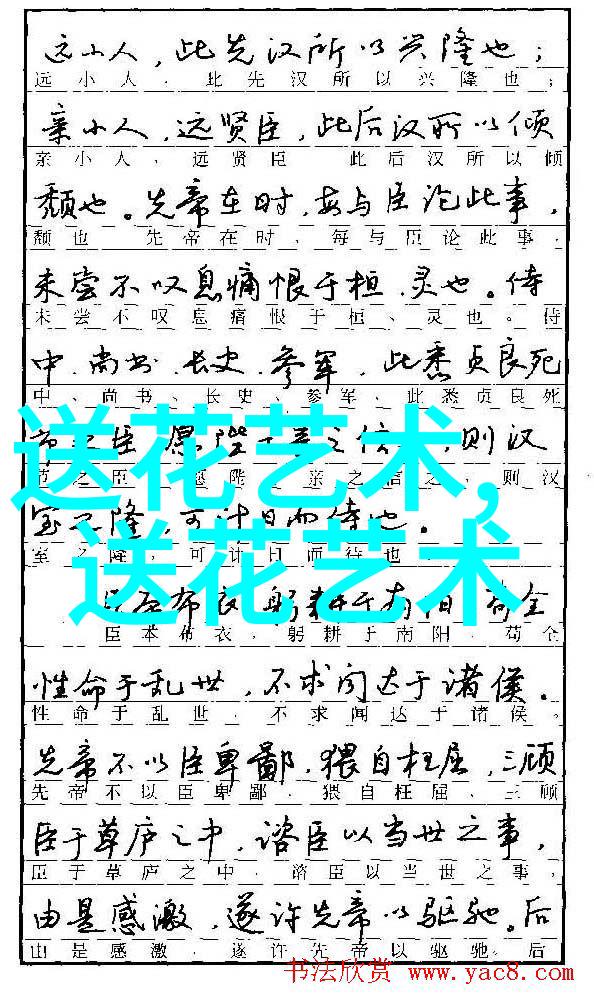 远小人，此先汉所以兴隆也；
远小人，此先汉所以兴隆也；
亲小人，远贤臣，此后汉所以倾
亲小人，远贤臣 此后汉所以倾
颓也。先帝在时，每与臣论此事，
颓也 先帝在时，每与臣论此事，
未尝不叹息痛恨于桓、灵也。侍
未尝不叹息痛恨于桓、灵也。侍
中、尚书、长史、参军，此悉贞良死
中、尚书、长史、参军，此悉贞良死
节之臣 愿陛 亲之信 ，则汉
节之臣 愿陛 亲之信之，则汉
送花艺术，
室之隆，可计日而待也。
室之隆，可计日而待也
送花艺术
臣本布衣，躬耕于南阳，苟全
臣本布衣，躬耕于南阳，苟全
性命于乱世，不求闻达于诸侯。
性命于乱世，不求闻达于诸侯。
先帝不以臣卑鄙，猥自枉屈，三顾
先帝不以臣卑鄙，猥自枉屈、三顾
臣于草庐之中，谘臣以当世之事，
臣于草庐之中，谘臣以当世之事，
由是感激，遂许先帝以驱驰。后
由是感激，遂许先帝以驱驰。后
书法欣赏 www.yac8.com